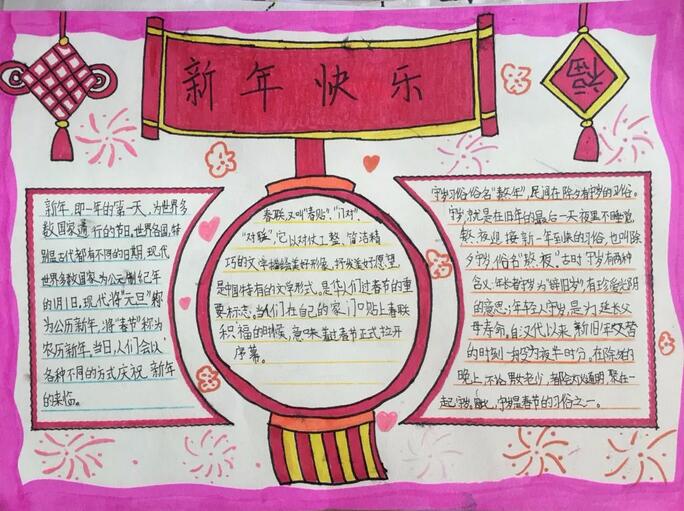 新年快乐
福
新年,即一年的第一天,为世界多
数国家通行的节日。世界各国,特
别是古代都有不同的日期,现代
世界多数国家为公元制纪年
的1月1日。现代将"元旦"称
为公历新年,将"春节"称为
农历新年。当日,人们会以
各种不同的方式庆祝新年
的来临。
春联,又叫"春贴"、"门对"、
"对联",它以对仗工整、简洁精
巧的文字描绘美好形象,抒发美好愿望,
是中国特有的文学形式。是人们过春节的重
要标志。当人们在自己的家门口贴上春联
积福的时候,意味着过春节正式拉开
序幕。
守岁习俗俗名"熬年",民间在除夕有守岁的习俗。
守岁,就是在旧年的最后一天夜里不睡觉
熬夜迎接新一年到来的习俗,也叫除
夕守岁,俗名"熬夜"。古时守岁有两种
含义:年长者守岁为"辞旧岁"有珍爱光阴
的意思;年轻人守岁,是为延长父
母寿命。自汉代以来,新旧年交替
的时刻一般为夜半时分。在除夕的
晚上,不论男女老少,都会灯火通明,聚在一
起守岁。因此,守岁是春节的习俗之一。